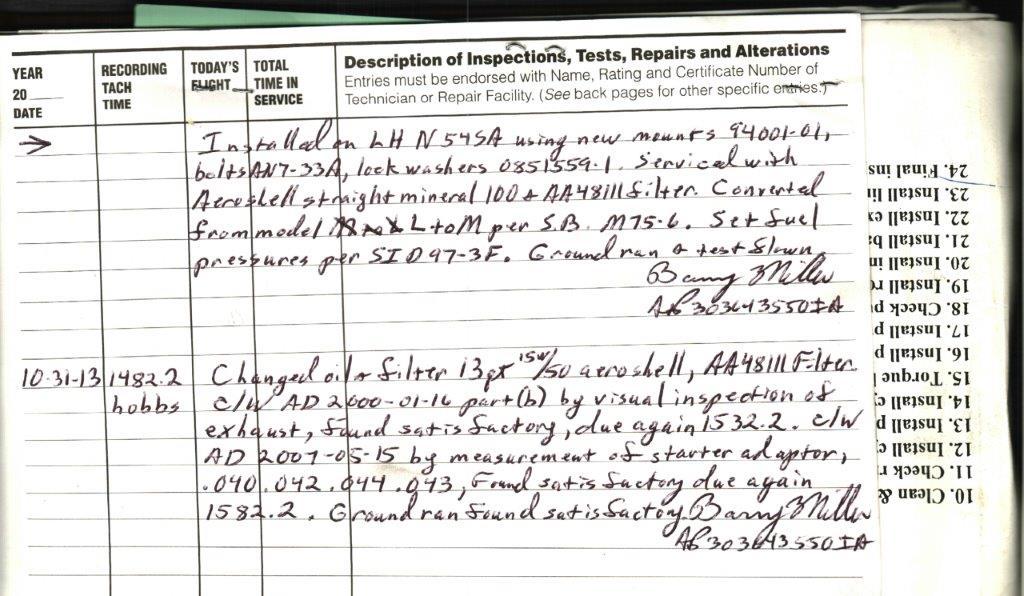 YEAR
20____
DATE
RECORDING
TACH
TIME
TODAY'S
FLIGHT
TOTAL
TIME IN
SERVICE
Description of Inspections, Tests, Repairs and Alterations
Entries must be endorsed with Name, Rating and Certificate Number of
Technician or Repair Facility. (See back pages for other specific entries.)
→ Installed on LH N545A using new mounts 94001-01,
bolts AN7-33A, lock washers 0851559-1. Serviced with
Aeroshell straight mineral 100 + AA48111 filter. Converted
from model L to M per S.B. M75-6. Set fuel
pressures per SID 97-3F. Ground ran & test flown
Barry Miller
AP303643550IA
10-31-13 1482.2 Changed oil & filter 13pt 15W/50 aeroshell, AA48111 Filter.
hobbs c/w AD 2000-01-16 part (b) by visual inspection of
exhaust, found satisfactory, due again 1532.2. c/w
AD 2007-05-15 by measurement of starter adaptor,
.040 .042 .044 .043, Found satisfactory due again
1582.2. Ground ran found satisfactory. Barry Miller
AP303643550IA
10. Clean &
11. Check r
12. Install c
13. Install p
14. Install c
15. Torque
16. Install p
17. Install p
18. Check p
19. Install r
20. Install in
21. Install b
22. Install ex
23. Install li
24. Final ins